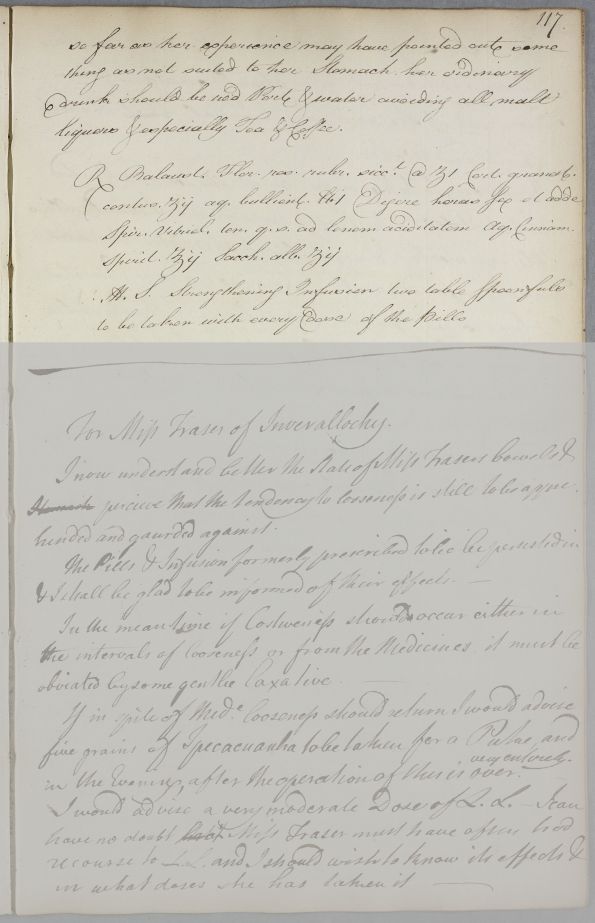 117.
so far as her experience may have pointed out some
thing as not suited to her Stomach. her ordinary
drink should be red Port & water avoiding all malt
liquors & especially Tea & Coffee.
R Balaust. Flor. ros. rubr. sicct. @ ʒ1 Cort. granat.
contus. ʒij aq. bullient. ℔1 Digere horas sex et adde
Spir. Vitriol. ten. q. s. ad lenem aciditatem Aq. Cinnam.
spirit. ʒij Sacch. alb. ʒij
M. S. Strengthening Infusion two table Spoonfuls
to be taken with every dose of the Pills
For Miss Fraser of Inverallochy.
I now understand better the State of Miss Frasers bowels &
Stomach percieve that the tendency to looseness is still to be appre-
hended and gaurded against.
The Pills & Infusion formerly prescribed to be persisted in
& I shall be glad to be informed of their effects. —
In the meantime if Costiveness should occur either in
the intervals of looseness or from the Medicines, it must be
obviated by some gentle laxative. —
If in spite of Mede. looseness should return I would advise
five grains of Ipecacuanha to be taken for a Puke, and
in the Evening, after the operation of this is over.
very entirely.
I would advise a very moderate Dose of L. L. — I can
have no doubt but Miss Fraser must have often had
recourse to L.L. and I should wish to know its effects &
in what doses she has taken it —